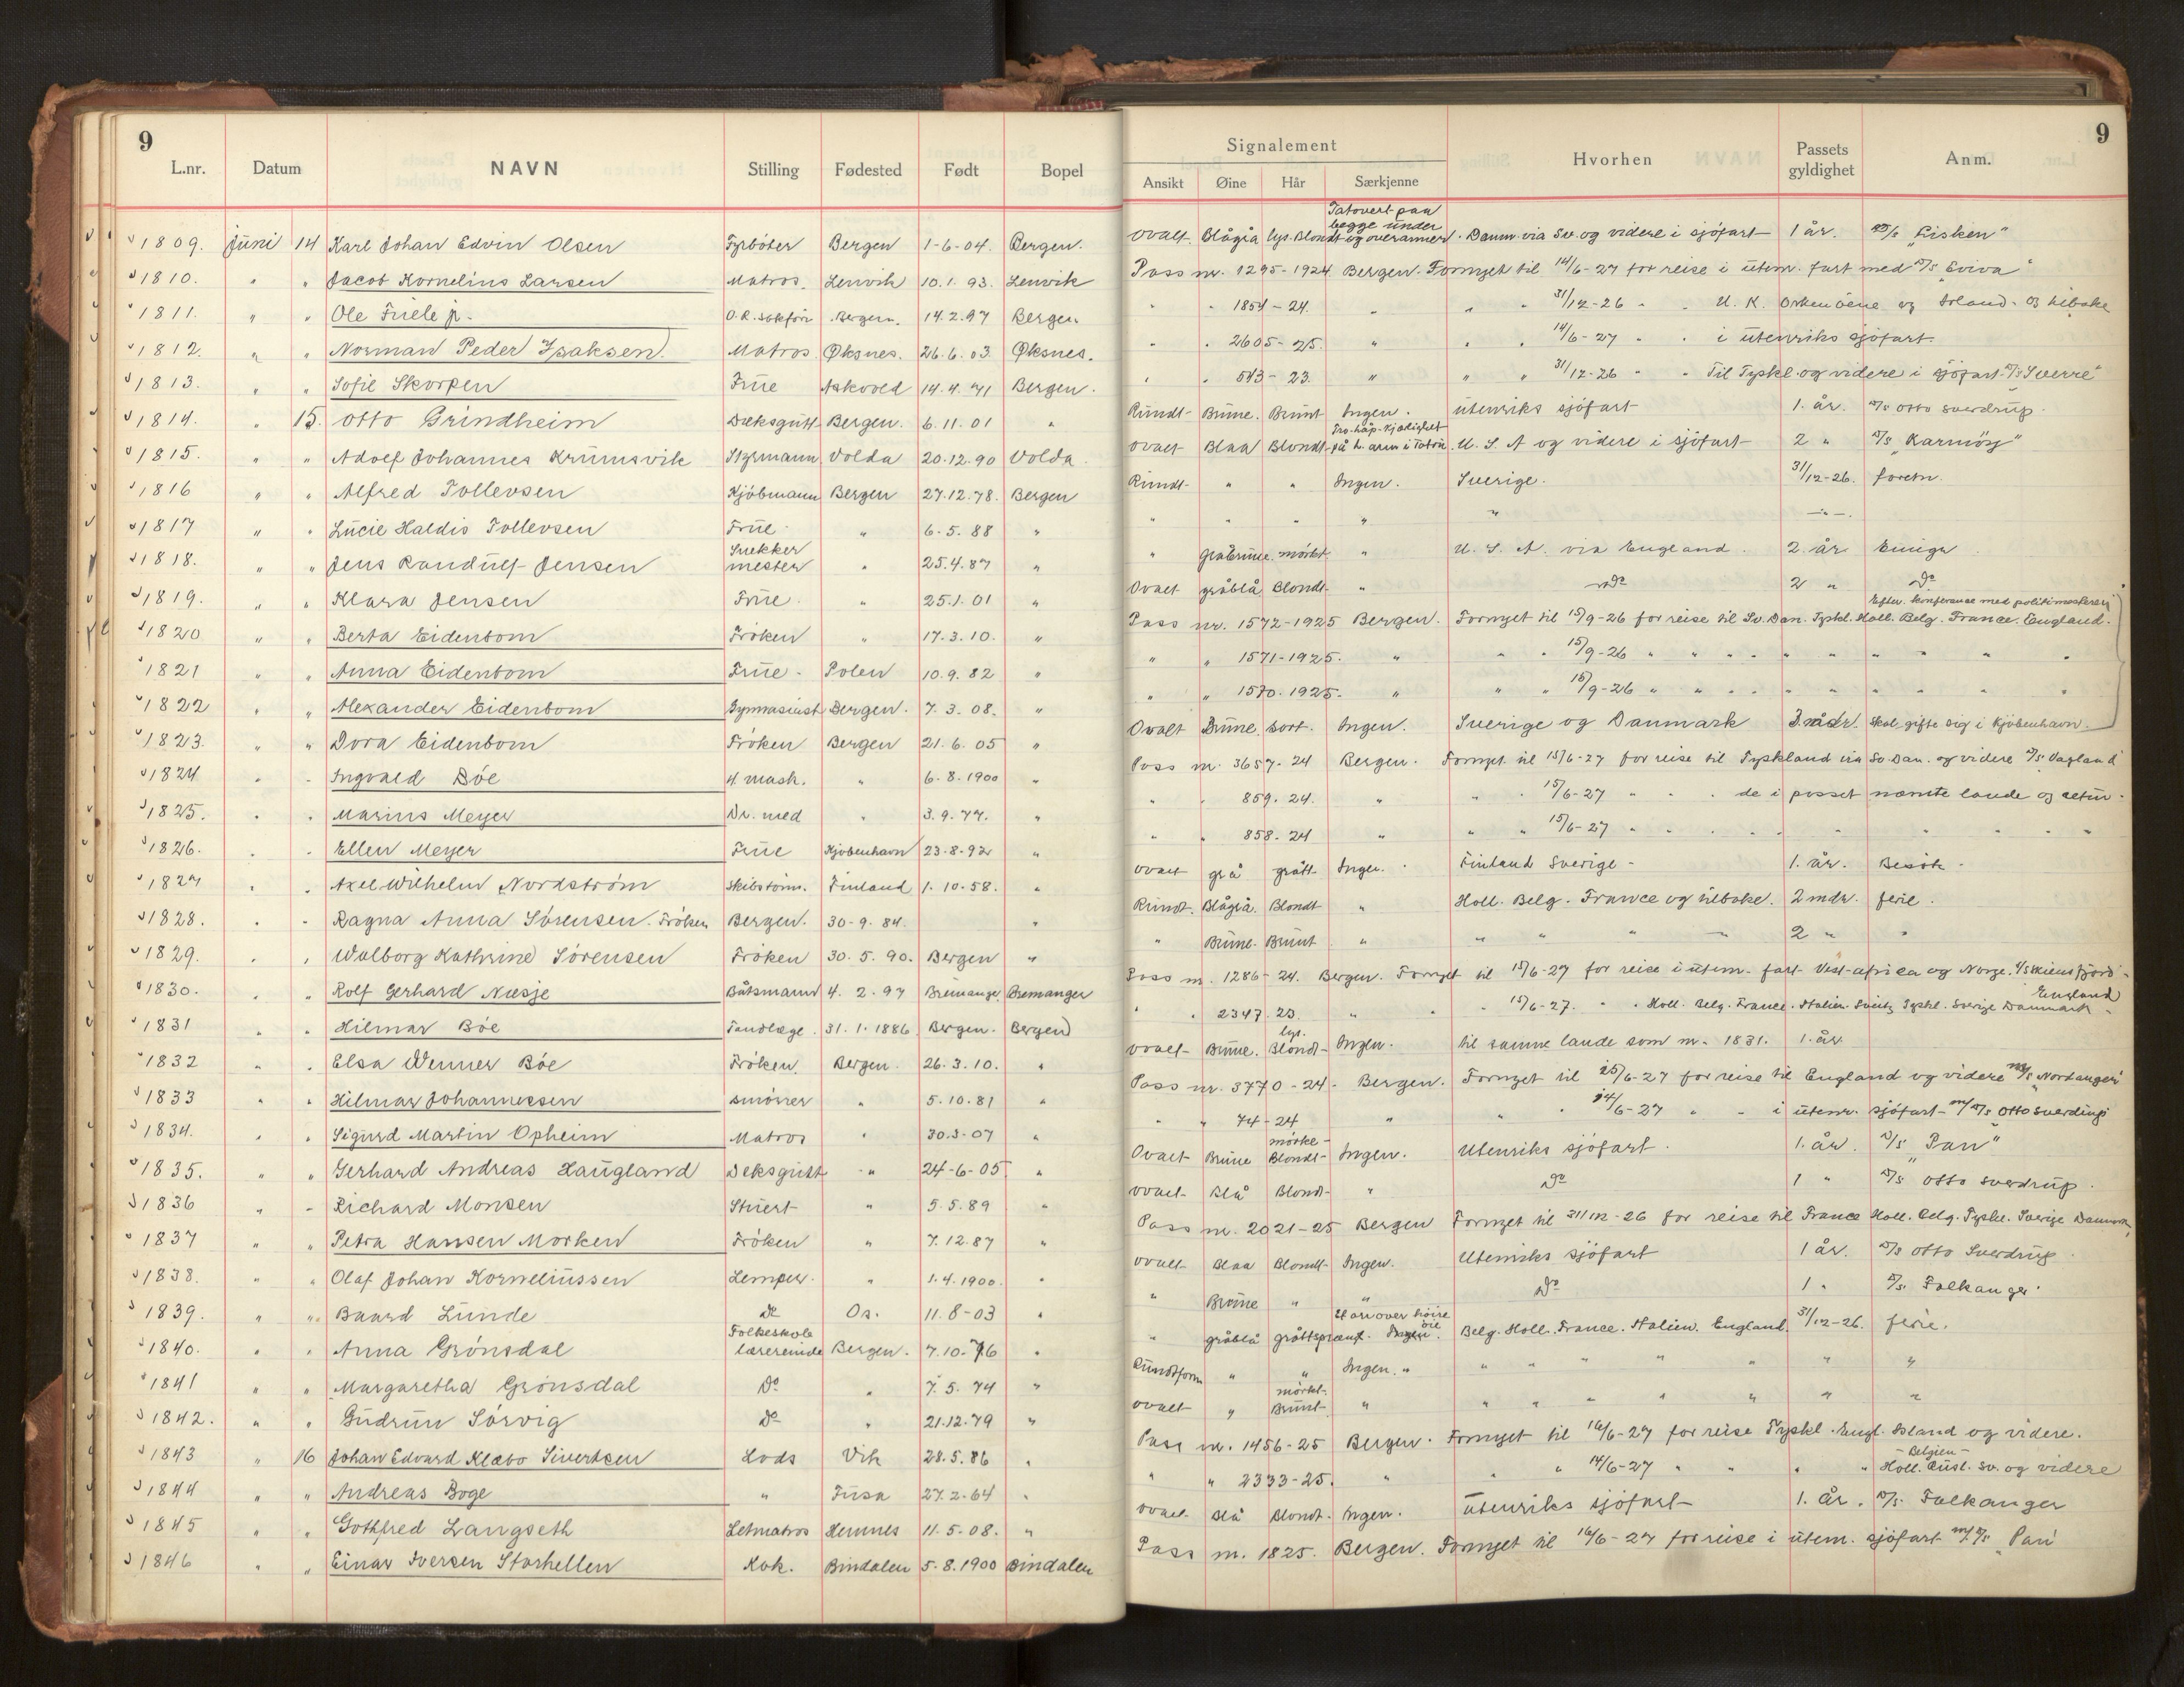 9
L.nr. Datum NAVN Stilling Fødested Født Bopel
1809. Juni 14 Karl Johan Edvin Olsen Fyrböter Bergen 1-6-04. Bergen.
1810. " " Jacob Kornelius Larsen Matros. Lenvik 10.1.93. Lenvik
1811. " " Ole Friele jr. O.R. sakförer Bergen. 14.2.97 Bergen
1812. " " Norman Peder Isaksen. Matros Øksnes. 26.6.03. Øksnes.
1813. " " Sofie Skorpen Frue Askvold 14.4.71 Bergen.
1814. " 15. Otto Grindheim Dæksgutt Bergen. 6.11.01 "
1815. " " Adolf Johannes Krumsvik Styrmann Volda 20.12.90 Volda
1816 " " Alfred Tollevsen Kjöbmann Bergen 27.12.78. Bergen
1817 " " Lucie Haldis Tollevsen Frue " 6-5.88 "
1818. " " Jens Randulf Jensen Snekker mester " 25.4.87 "
1819. " " Klara Jensen Frue. " 25.1.01 "
1820 " " Berta Eidenbom Fröken " 17.3.10. "
1821 " " Anna Eidenbom Frue - Polen 10.9.82 "
1822 " " Alexander Eidenbom Gymnasiast Bergen. 7.3.08. "
1823. " " Dora Eidenbom Fröken Bergen 21.6.05 "
1824 " " Ingvald Böe 4 mask. " 6.8.1900 "
1825. " " Marius Meyer Dr. med " 3.9.77. "
1826. " " Ellen Meyer Frue Kjöbenhavn 23-8-92 "
1827 " " Axel Wilhelm Nordström Skibstöm. Finland 1.10-58. "
1828. " " Ragna Anna Sörensen. Fröken Bergen. 30-9.84. "
1829. " " Walborg Kathrine Sörensen Fröken 30.5.90. Bergen "
1830. " " Rolf Gerhard Næsje Båtsmann 4.2.97 Bremanger Bremanger
1831 " " Hilmar Böe Tandlæge. 31.1.1886. Bergen. Bergen
1832 " " Elsa Wenner Böe Fröken. Bergen. 26.3.10. "
1833 " " Hilmar Johannessen Smörer " 5.10.81 "
1834. " " Sigurd Martin Opheim Matros " 30.3-07 "
1835. " " Gerhard Andreas Haugland Deksgutt " 24-6-05. "
1836 " " Richard Monsen Stuert " 5.5.89 "
1837 " " Petra Hansen Morken Fröken " 7.12.87 "
1838. " " Olaf Johan Korneliussen Lemper. " 1.4.1900. "
1839. " " Baard Lunde Do Os. 11.8-03 "
1840. " " Anna Grönsdal Folkeskole lærerinde Bergen. 7.10-76 "
1841 " " Margaretha Grönsdal Do " 7.5.74 "
1842. " " Gudrun Sörvig Do " 21.12.79 "
1843 " 16 Johan Edvard Klæbo Sivertsen Lods Vik 28.5.86 "
1844 " " Andreas Boge " Fusa 27.2-64 "
1845 " " Gothfred Langseth Letmatros Hemnes 11.5-08. "
1846 " " Einar Iversen Storhellen Kok. Bindalen 5.8.1900 Bindalen
9
Signalement Hvorhen Passets gyldighet Anm.
Ansikt Øine Hår Særkjenne
Ovalt Blågrå lys.Blondt Tatovert paa begge under og overarmer. Danm via Sv. og videre i sjöfart 1 år. D/S "Fisken"
Pass nr. 1295-1924 Bergen. Fornyet til 14/6-27 for reise i utenr. fart med D/S "Eviva"
" " 1854-24. " " " 31/12-26 " " U.K. Orkenöene og Irland - og tilbake
" " 2605-25. " " " 14/6-27 " " i utenriks sjöfart.
" " 543-23. " " " 31/12-26 " " Til Tyskl. og videre i sjöfart D/S "Sverre"
Rundt Brune. Brunt Ingen. utenriks sjöfart 1. år. D/S Otto Sverdrup.
Ovalt Blaa Blondt Tro-håp-kjærlighet på h. arm i Tatov. U.S.A og videre i sjöfart 2 " D/S "Karmöy"
Rundt " " Ingen. Sverige. 31/12-26. foretn.
" " " " " -"-
" gråbrune. mörkt " U.S.A. via England. 2 år Emigr
Ovalt gråblå Blondt " Do 2 " Do
Efter konferance med politimesteren
Pass nr. 1572-1925 Bergen. Fornyet til 15/9-26 for reise til Sv. Dan. Tyskl. Holl. Belg. France. England.
" " 1571-1925. " " " 15/9-26 " " " " " " " " "
" " 1570.1925. " " " 15/9-26 " " " " " " " " "
Ovalt Brune Sort. Ingen. Sverige og Danmark 3 mdr. Skal gifte sig i Kjöbenhavn.
Pass nr. 3657-24 Bergen. Fornyet til 15/6-27 for reise til Tyskland via Sv. Dan. og videre D/S "Vagland"
" " 859.24. " " " 15/6-27 " " de i passet nævnte lande og retur.
" " 858.24 " " " 15/6-27 " " " " " " "
Ovalt grå grått Ingen. Finland Sverige - 1. år. Besök -
Rundt. Blågrå. Blondt " Holl. Belg. France og tilbake. 2 mdr. ferie.
" Brune. Brunt " " " " " 2 " "
Pass nr. 1286-24. Bergen. Fornyet til 15/6-27 for reise i utenr. fart Vest-africa og Norge. D/S Skiensfjord
" " 2347.23. " " " 15/6-27. " " Holl. Belg. France. Italien. Sveitz Tyskl. Sverige Danmark England
Ovalt Brune. lys. Blondt Ingen. til samme lande som nr. 1831. 1. år.
Pass nr. 3770-24- Bergen. Fornyet til 15/6-27 for reise til England og videre m/S "Nordanger"
" " 74-24 " " " 14/6-27 " " i utenr. sjöfart m/ D/S Otto Sverdrup
Ovalt Brune mörke-Blondt Ingen. Utenriks sjöfart. 1. år. D/S "Pan"
Ovalt Blå Blondt " Do 1 " D/S Otto Sverdrup.
Pass nr. 2021-25 Bergen Fornyet til 31/12-26 for reise til France Holl. Belg. Tyskl. Sverige Danmark
Ovalt Blaa Blondt Ingen. Utenriks sjöfart 1 år. D/S Otto Sverdrup.
" Brune " " Do 1 " D/S Falkanger
" gråblå gråttsprængt. Et arr over höire öie Ingen. Belg. Holl. France. Italien. England. 31/12-26. ferie.
Rundtform " " Ingen. " " " " " " " "
Ovalt " mörkt Brunt " " " " " " " "
Pass nr. 1456-25 Bergen. Fornyet til 16/6-27 for reise Tyskl. Engl. Island og videre.
" " 2333-25. " " " 14/6-27 " " " " Holl. Belgien Rusl. Sv. og videre
Ovalt Blå Blondt. Ingen. Utenriks sjöfart 1. år. D/S. Falkanger
Pass nr. 1825. Bergen. Fornyet til 16/6-27 for reise i utenr. sjöfart m/ D/S "Pan"